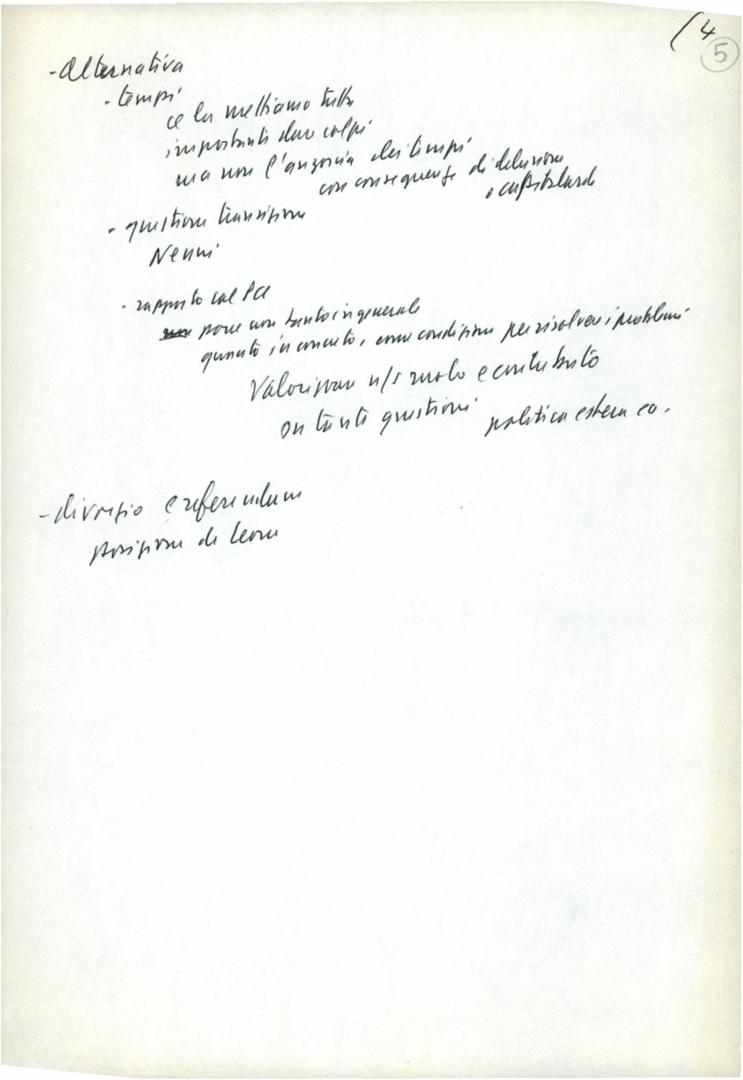 (4
5
- Alternativa
- tempi
ce la mettiamo tutta
importante dare colpi
ma non l'angoscia dei tempi
con conseguenze di delusione
o
- questione transizione
Nenni
- rapporto col PCI
porre non tanto in generale
quanto in concreto, come condizione per risolvere i problemi
Valorizzare n/s ruolo e contributo
su tante questioni politica estera ec.
- divorzio e referendum
posizione di Leone